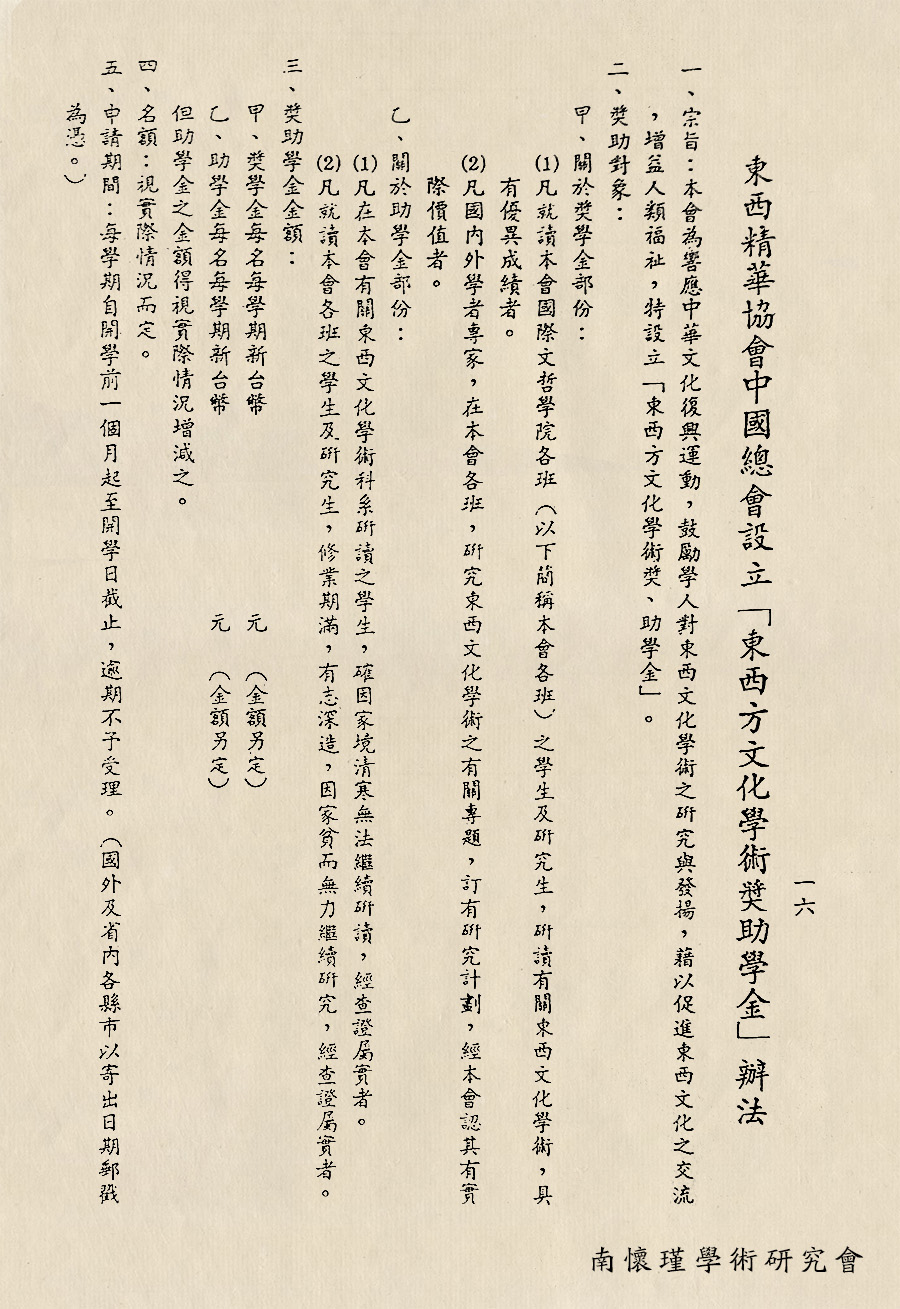 一六
東西精華協會中國總會設立「東西方文化學術奬助學金」辦法
一、宗旨：本會為響應中華文化復興運動，鼓勵學人對東西文化學術之研究與發揚，藉以促進東西文化之交流
，增益人類福祉，特設立「東西方文化學術奬、助學金」。
二、奬助對象：
甲、關於奬學金部份：
(1)凡就讀本會國際文哲學院各班（以下簡稱本會各班）之學生及研究生，研讀有關東西文化學術，具
有優異成績者。
(2)凡國内外學者專家，在本會各班，研究東西文化學術之有關專題，訂有研究計劃，經本會認其有實
際價值者。
乙、關於助學金部份：
(1)凡在本會有關東西文化學術科系研讀之學生，確因家境清寒無法繼續研讀，經查證屬實者。
(2)凡就讀本會各班之學生及研究生，修業期滿，有志深造，因家貧而無力繼續研究，經查證屬實者。
三、奬助學金金額：
甲、奬學金每名每學期新台幣　　　元（金額另定）
乙、助學金每名每學期新台幣　　　元（金額另定）
但助學金之金額得視實際情況增減之。
四、名額：視實際情況而定。
五、申請期間：每學期自開學前一個月起至開學日截止，逾期不予受理。（國外及省内各縣市以寄出日期郵戳
為憑。）
南懷瑾學術研究會